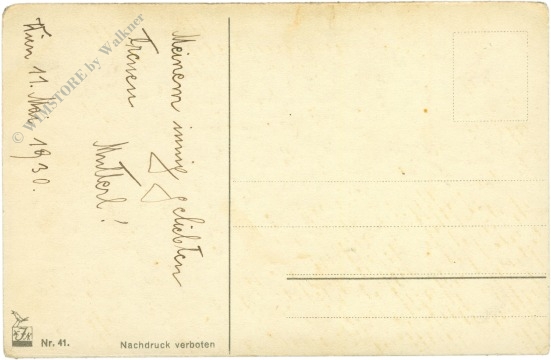 Meinem innig geliebten
treuen
Mutterl!
Wien 11. Mai 1930.
© WIMSTORE by Walkner
Nr. 41.
Nachdruck verboten